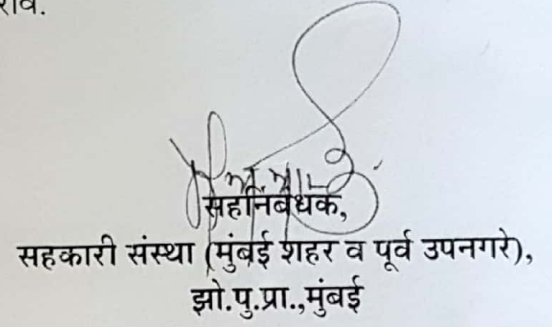 सहनिबंधक,
सहकारी संस्था (मुंबई शहर व पूर्व उपनगरे),
झो.पु.प्रा.,मुंबई